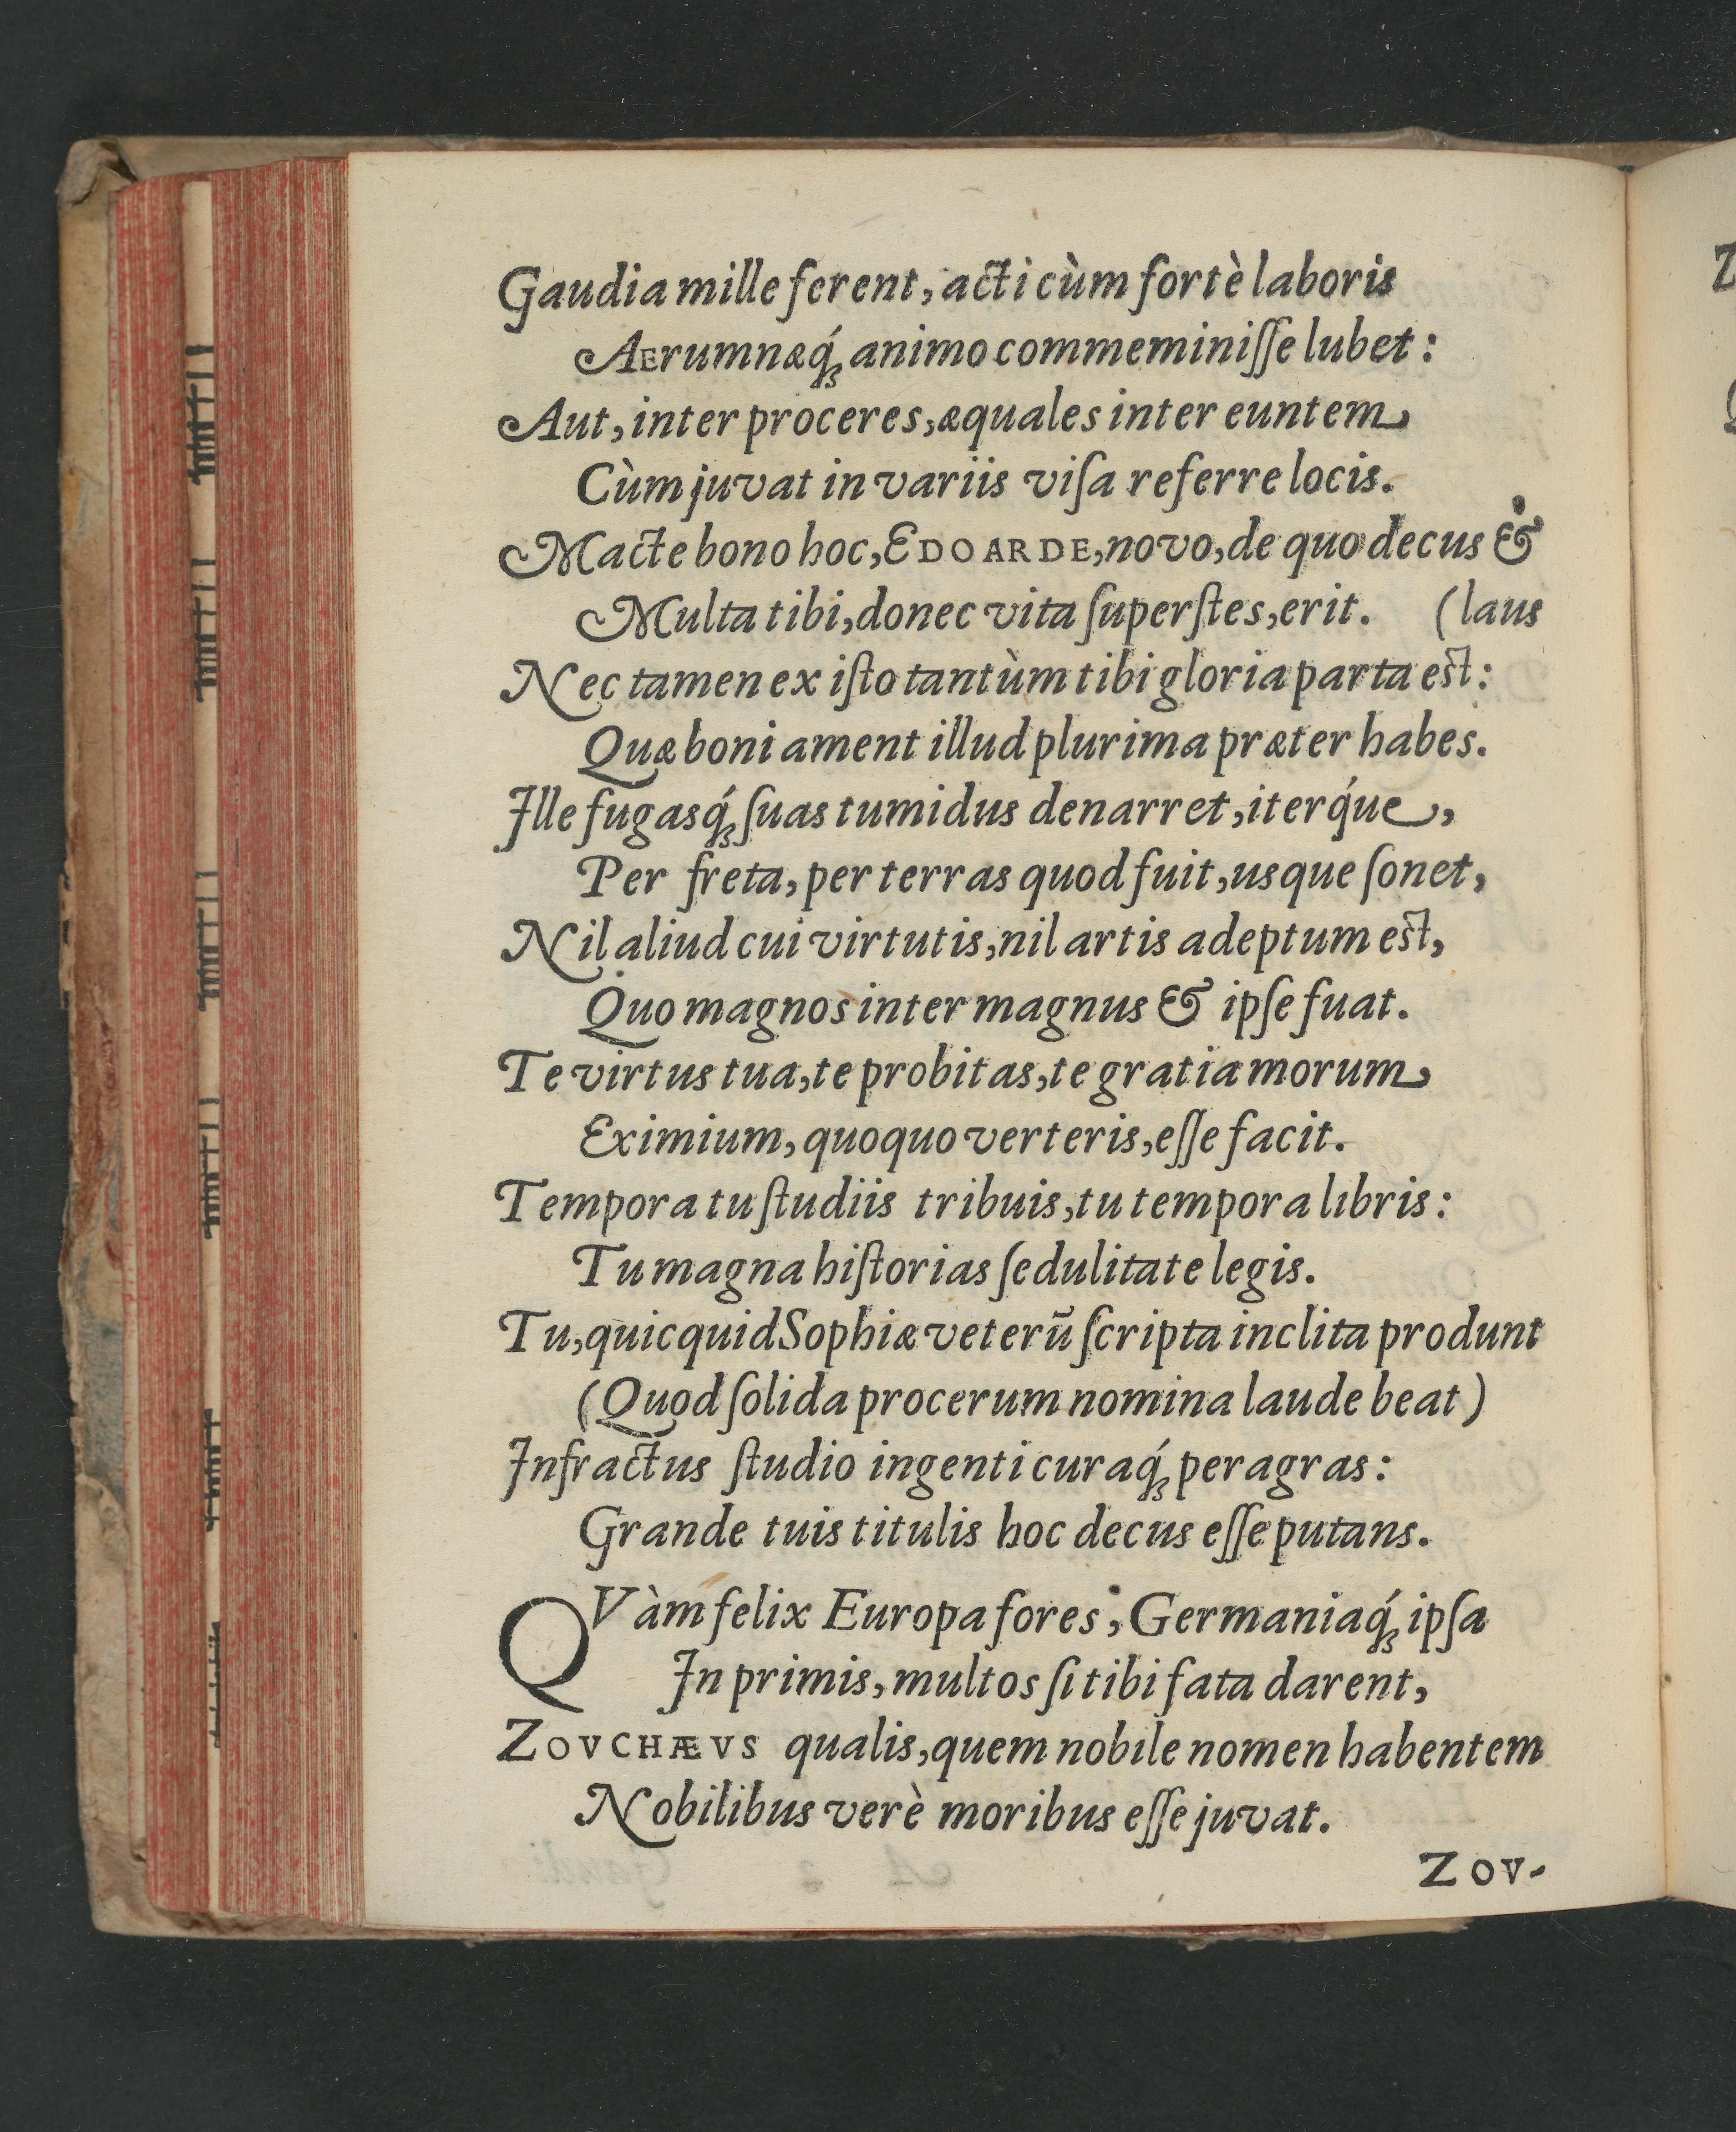 Gaudia mille ferent, acti cùm fortè laboris
Aerumnæq́ꝫ animo commeminiſſe lubet:
Aut, inter proceres, æquales inter euntem
Cùm juvat in variis viſa referre locis.
Macte bono hoc, EDOARDE, novo, de quo decus &
Multa tibi, donec vita ſuperſtes, erit. (laus
Nec tamen ex iſto tantùm tibi gloria parta est:
Quæ boni ament illud plurima præter habes.
Ille fugasq́ꝫ ſuas tumidus denarret, iterq́ue,
Per freta, per terras quod fuit, usque ſonet,
Nil aliud cui virtutis, nil artis adeptum est,
Quo magnos inter magnus & ipſe fuat.
Te virtus tua, te probitas, te gratia morum
Eximium, quoquo verteris, eſſe facit.
Tempora tu ſtudiis tribuis, tu tempora libris:
Tu magna hiſtorias ſedulitate legis.
Tu, quicquid Sophiæ veterū ſcripta inclita produnt
(Quod ſolida procerum nomina laude beat)
Infractus ſtudio ingenti curaq́ꝫ peragras:
Grande tuis titulis hoc decus eſſe putans.
QVàm felix Europa fores, Germaniaq́ꝫ ipſa
In primis, multos ſi tibi fata darent,
ZOVCHÆVS qualis, quem nobile nomen habentem
Nobilibus verè moribus eſſe juvat.
ZOV-